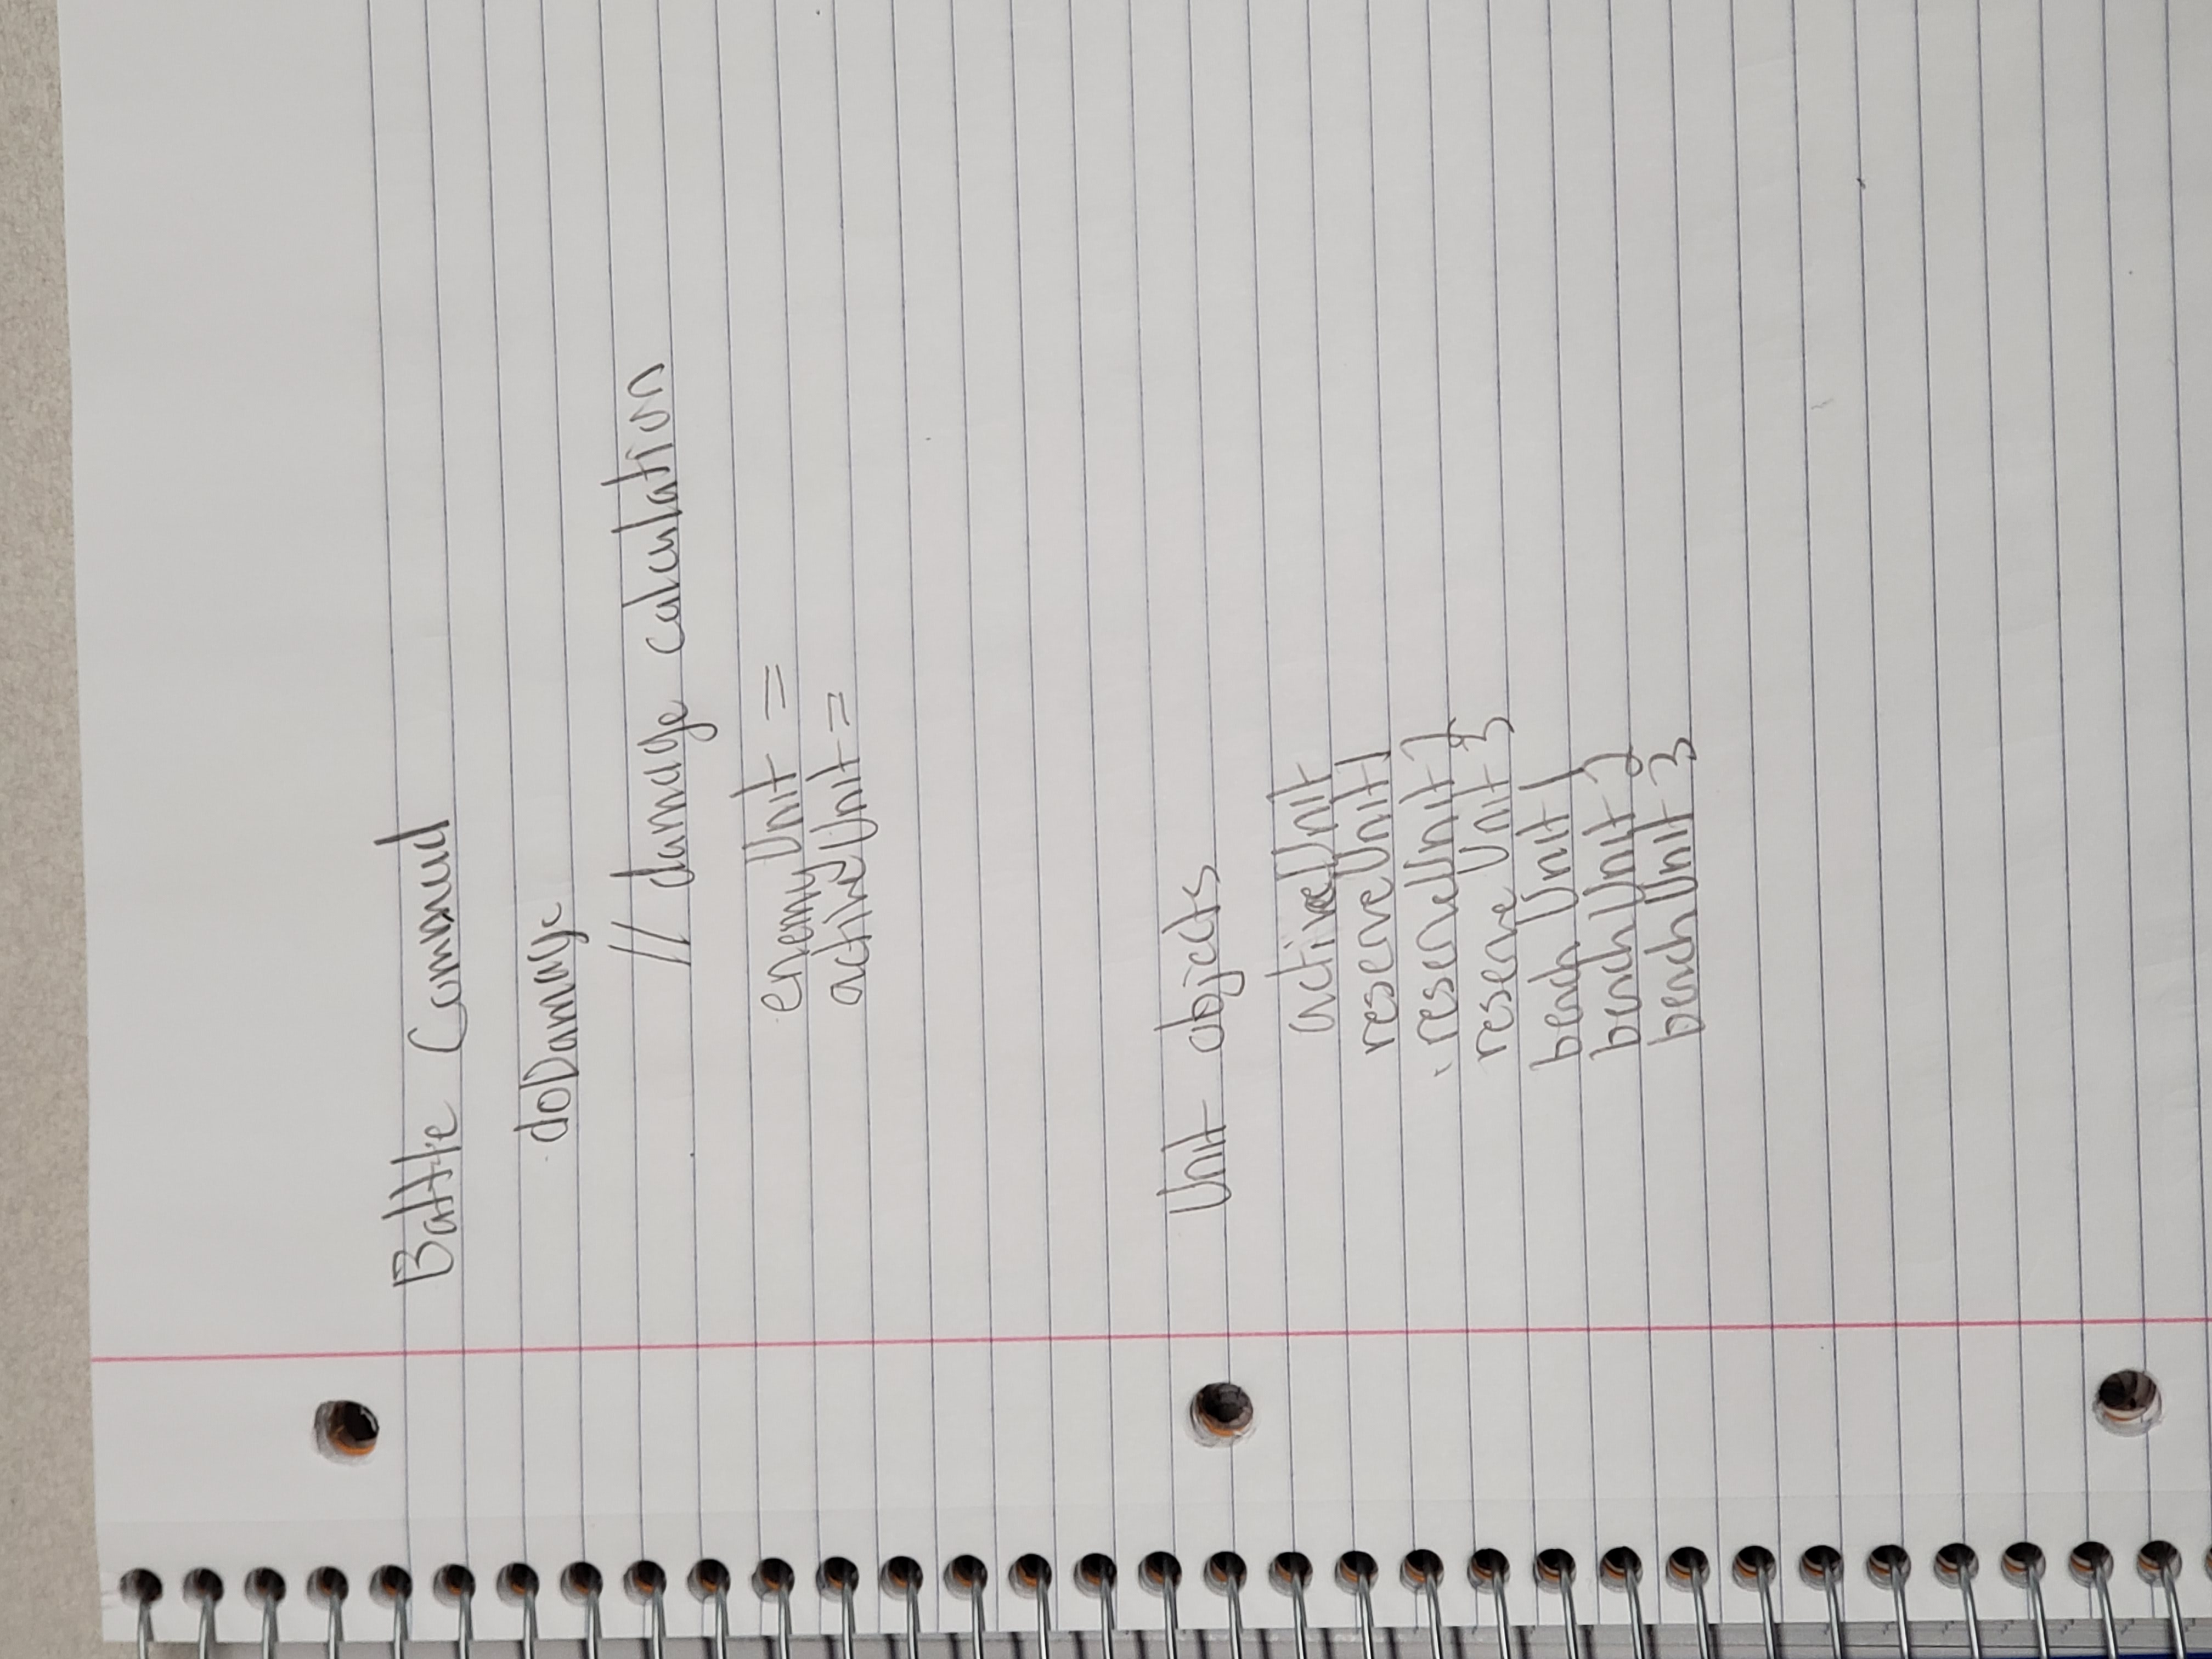 Battle Command
doDamage
// damage calculation
enemyUnit =
activeUnit =
Unit objects
activeUnit
reserveUnit1
reserveUnit 2
reserve Unit 3
bench Unit 1
benchUnit 2
benchUnit 3